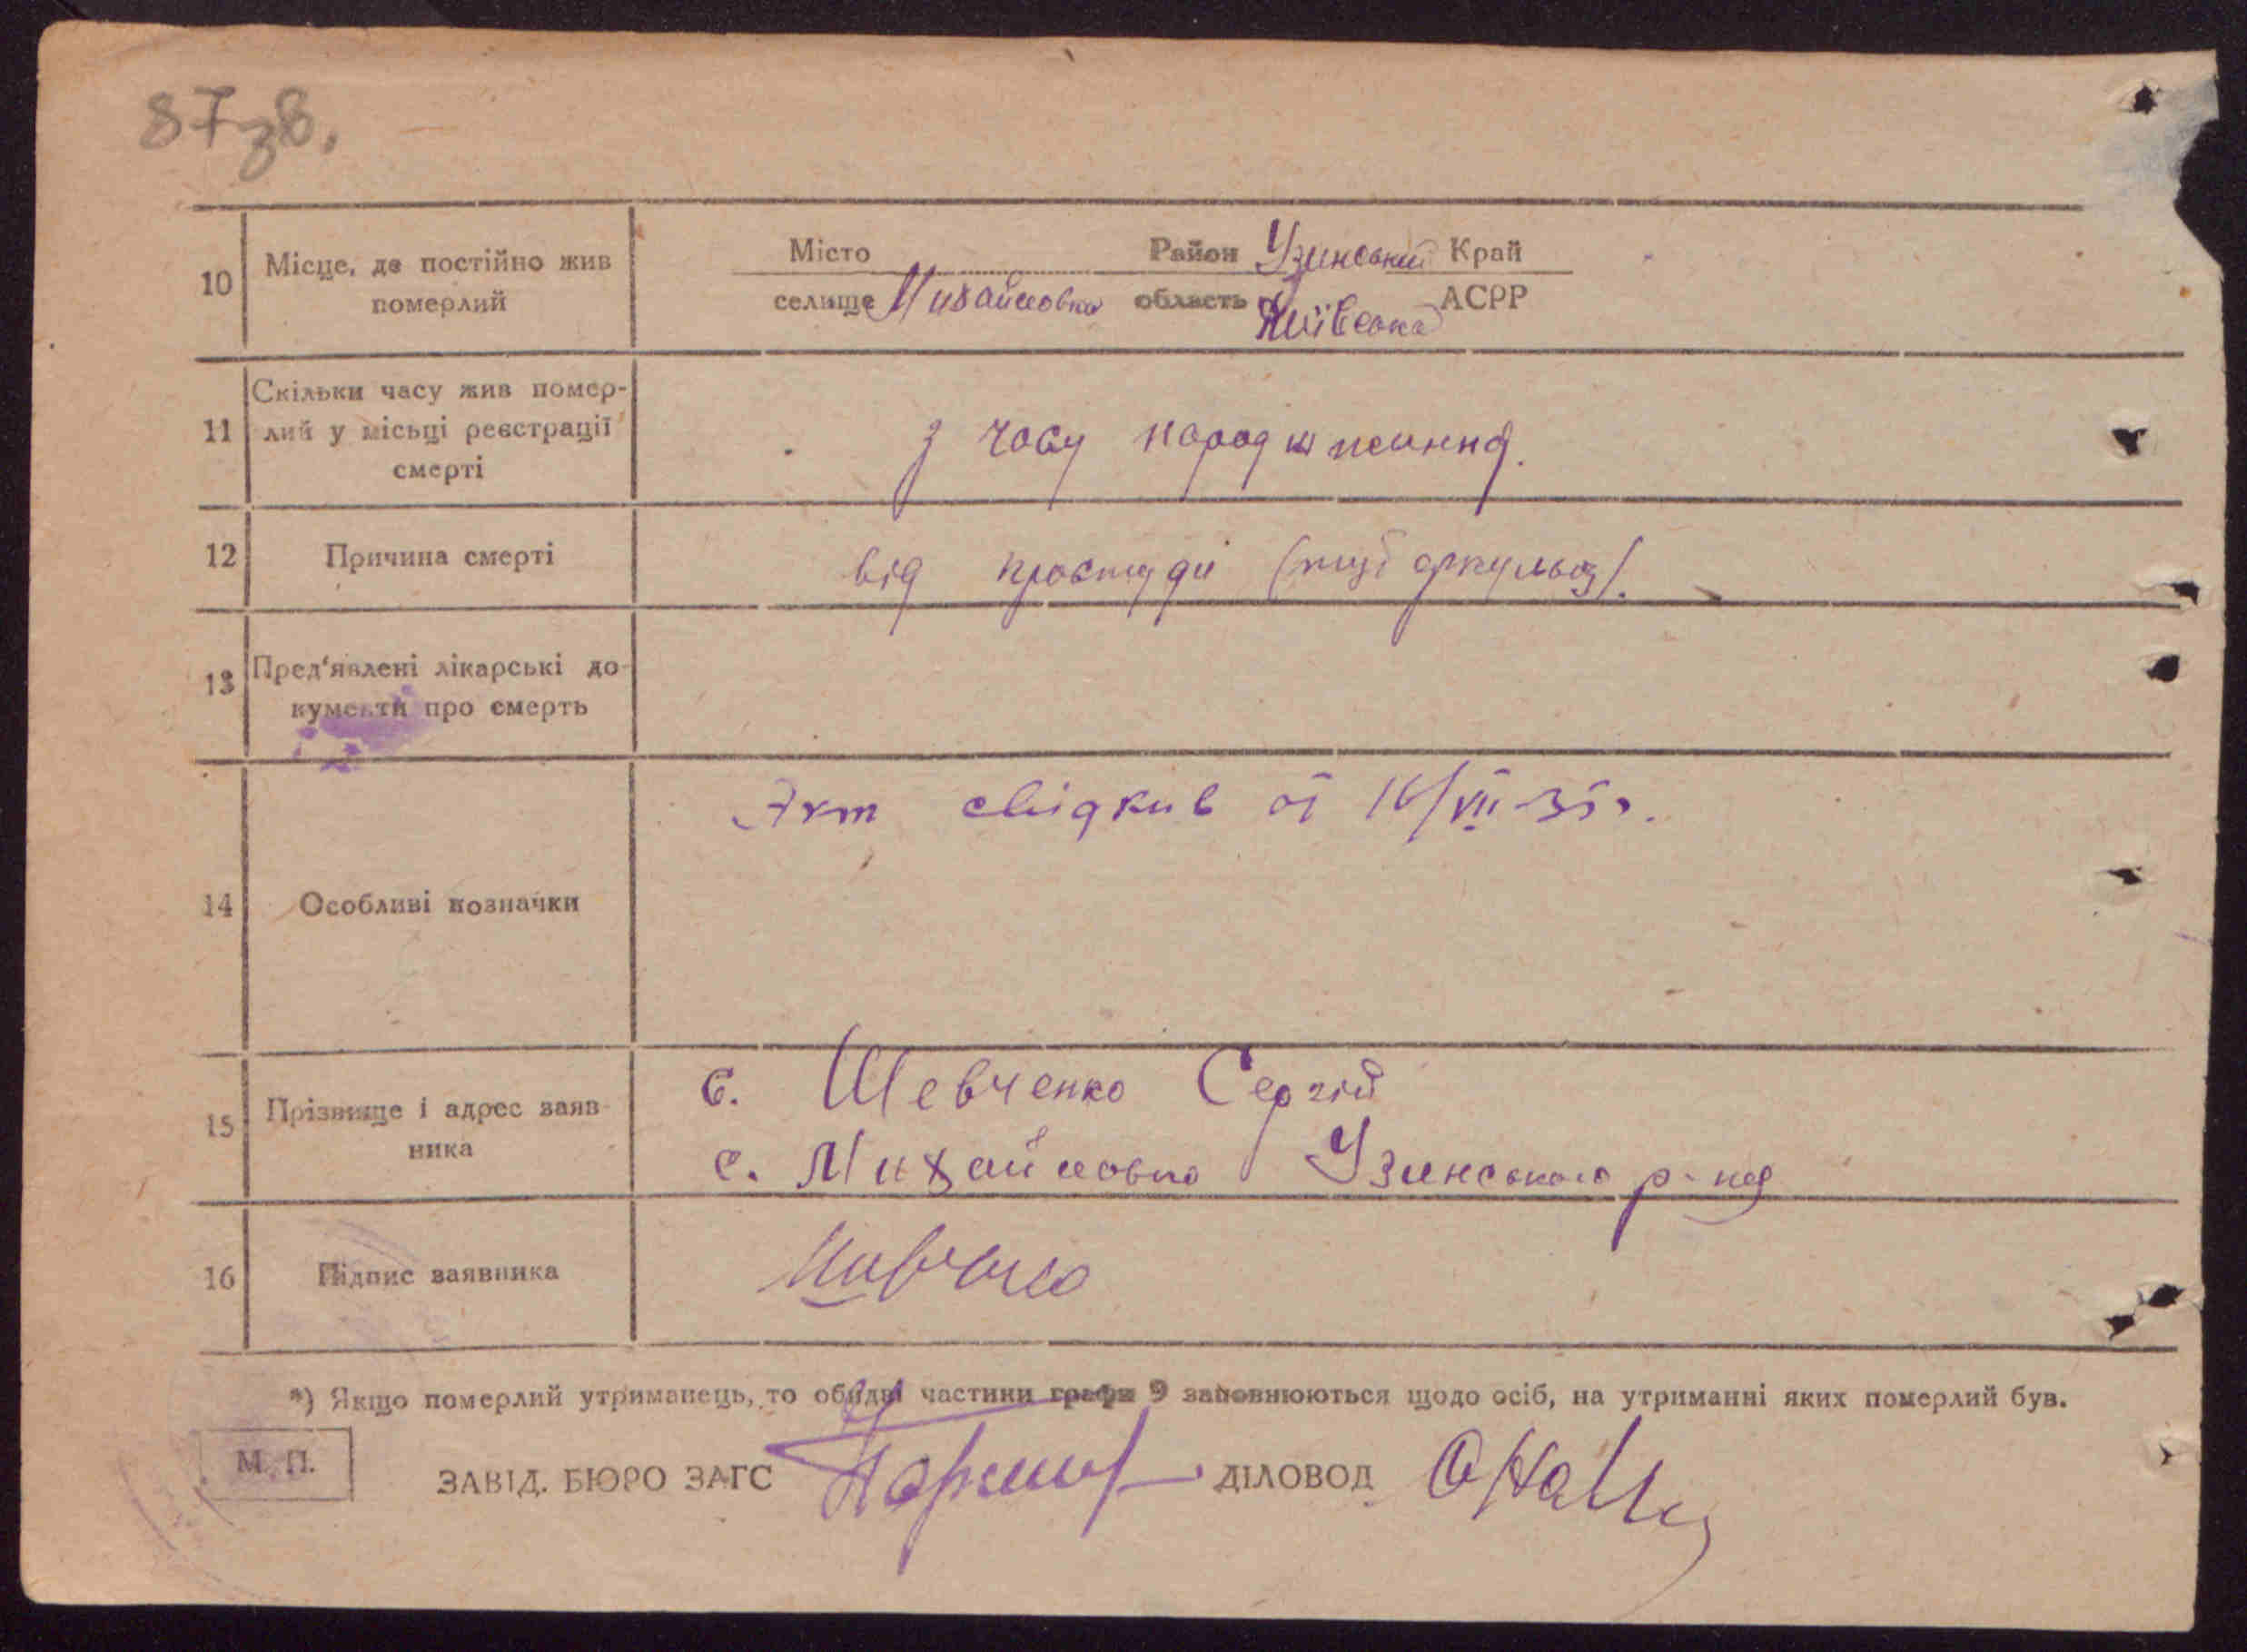 87зв.
10 Місце, де постійно жив померлий
Місто Район Узинський Край
селище Михайловка область Київська АСРР
11 Скільки часу жив помер-
лий у місьці реєстрації
смерті
з часу народження.
12 Причина смерті
від простуди (туберкульоз).
13 Пред'явлені лікарські до-
кументи про смерть
14 Особливі позначки
Акт свідкив от 16/VII-35 г.
15 Прізвище і адрес заяв-
ника
с. Шевченко Сергій
с. Михайловка Узинського р-на
16 Підпис заявника
*) Якщо померлий утриманець, то обидві частини графи 9 заповнюються щодо осіб, на утриманні яких померлий був.
М. П.
ЗАВІД. БЮРО ЗАГС ДІЛОВОД